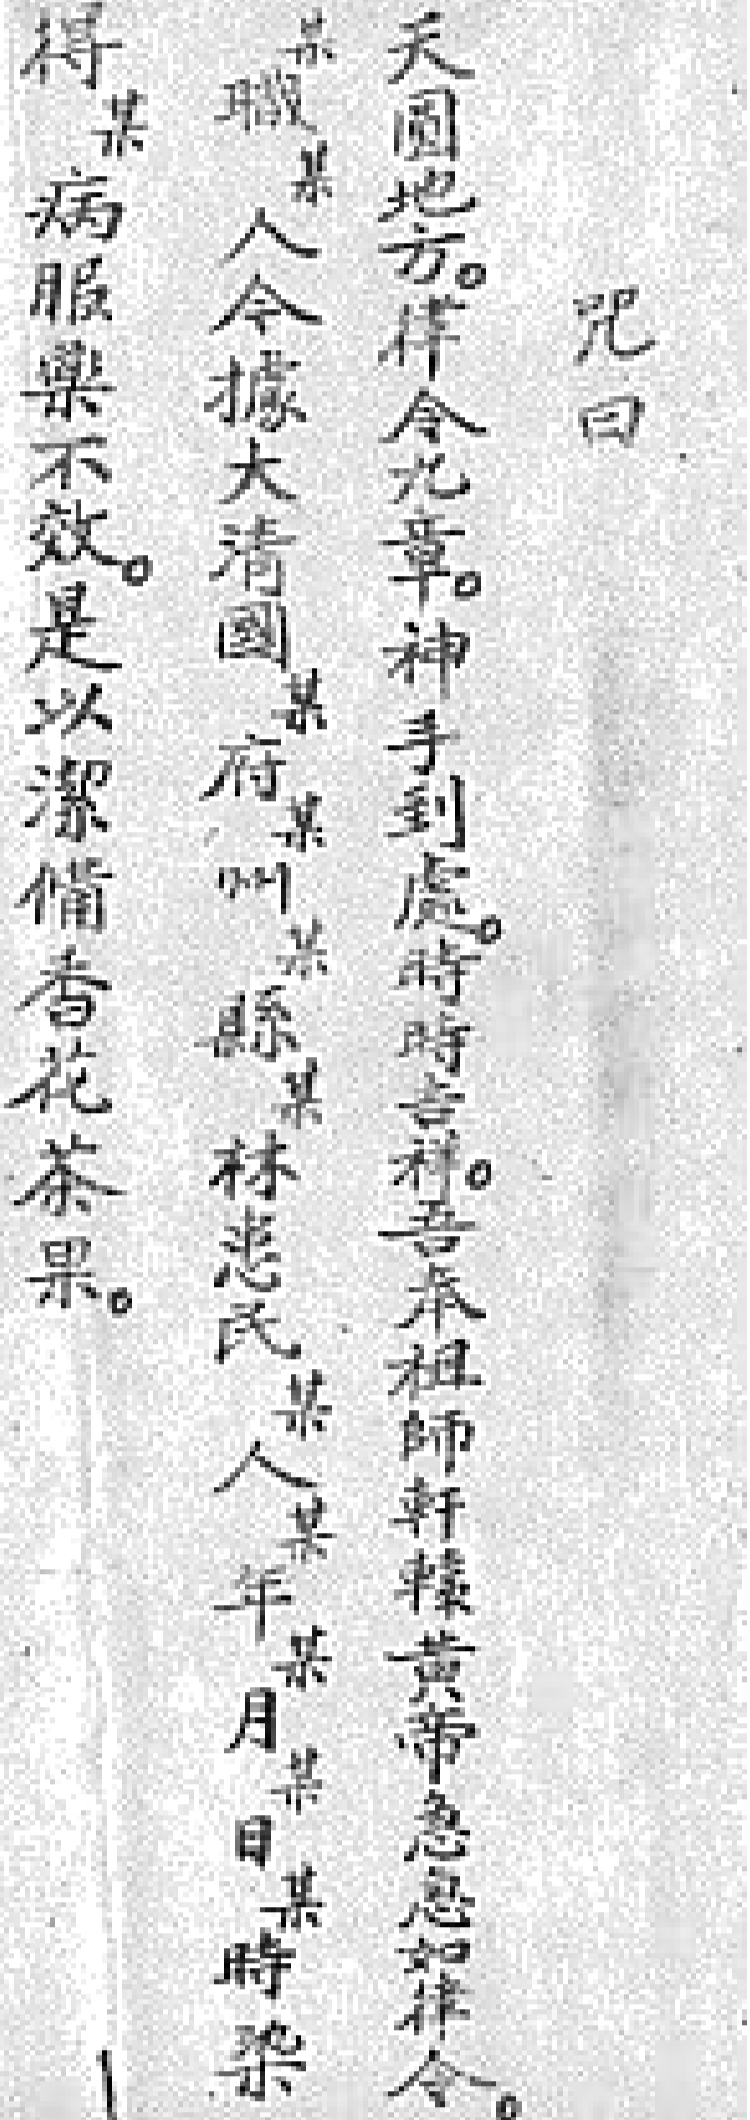 咒曰
天圓地方。律令九章。神手到處。時時吉祥。吾奉祖師軒轅黃帝急急如律令。
某職某人今據大清國某府某州某縣某林患民某人某年某月某日某時染
得某病服藥不效。是以潔備香花茶果。